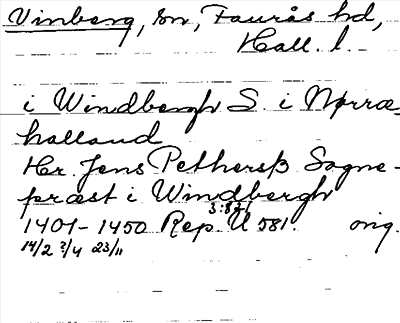 Vinberg, sn, Faurås hd,
Hall. l.
i Windbergh S i Nørræ-
halland
Hr. Jens Pethersß Sogne-
præst i Windbergh
3:821
1401-1450 Rep. U 581. orig.
14/2 2/4 23/11